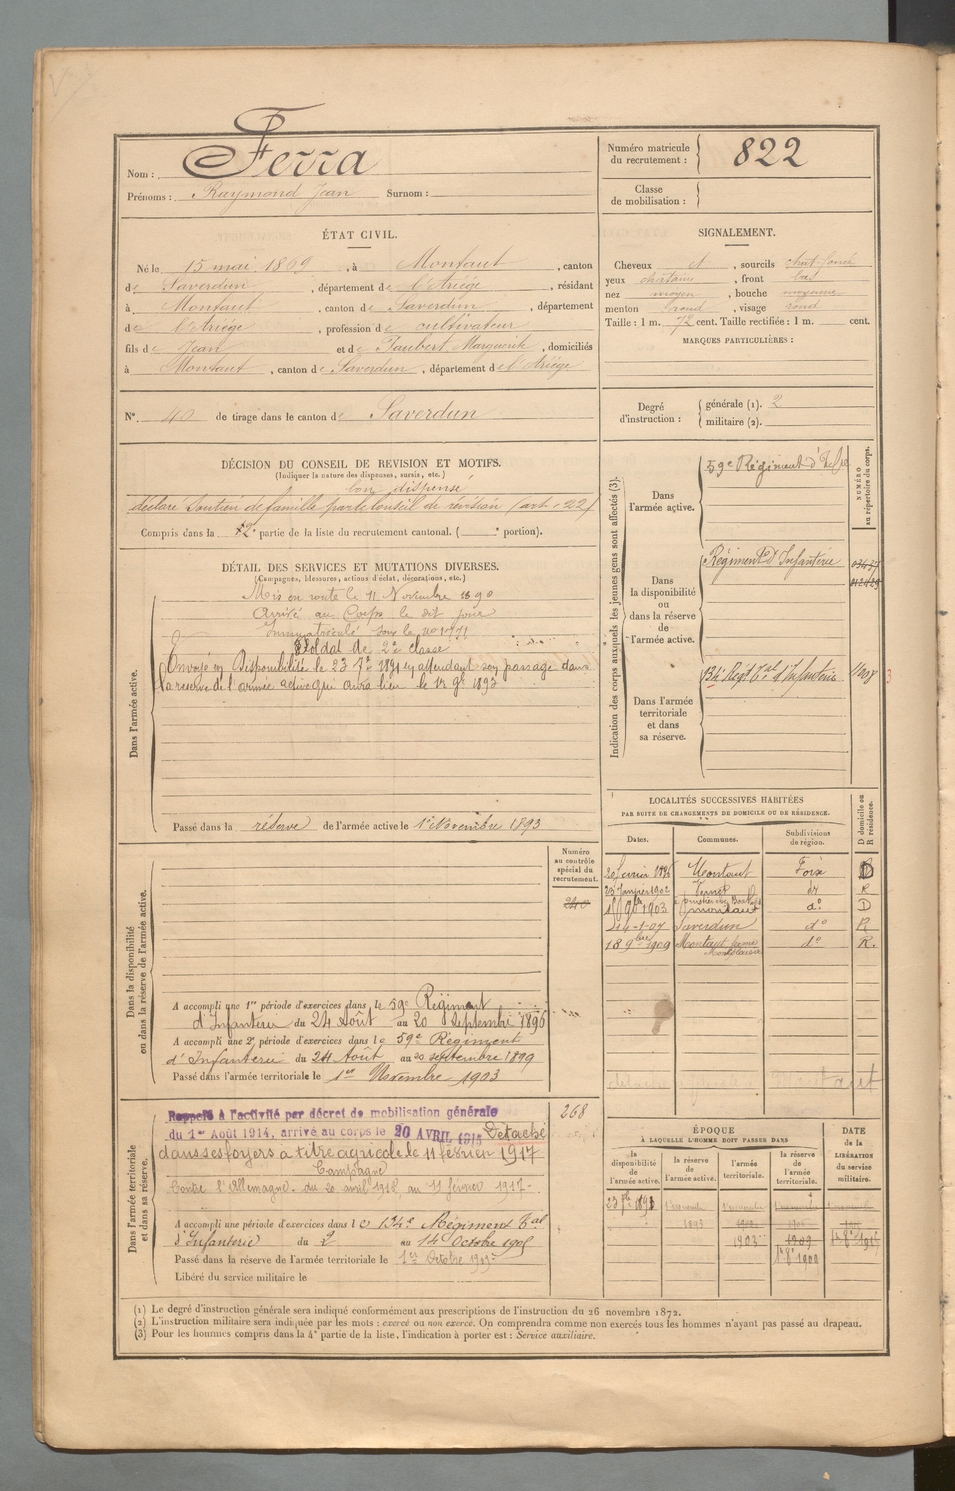 Nom : Ferra
Prénoms : Raymond Jean Surnom :
Numéro matricule du recrutement : 822
Classe de mobilisation :
ÉTAT CIVIL.
Né le 15 mai 1869, à Montaut, canton
de Saverdun, département de l'Ariège, résidant
à Montaut, canton de Saverdun, département
de l'Ariège, profession de cultivateur
fils de Jean et de Jaubert Marguerite, domiciliés
à Montaut, canton de Saverdun, département de l'Ariège
N° 40 de tirage dans le canton de Saverdun
SIGNALEMENT.
Cheveux et, sourcils chat. foncé
yeux chatains, front bas
nez moyen, bouche moyenne
menton rond, visage rond
Taille : 1 m. 72 cent. Taille rectifiée : 1 m. cent.
MARQUES PARTICULIÈRES :
Degré d'instruction : générale (1). 2
militaire (2).
DÉCISION DU CONSEIL DE REVISION ET MOTIFS.
(Indiquer la nature des dispenses, sursis, etc.)
bon dispensé
déclaré Soutien de famille par le Conseil de révision (art. 22)
Compris dans la 2e partie de la liste du recrutement cantonal. ( e portion).
DÉTAIL DES SERVICES ET MUTATIONS DIVERSES.
(Campagnes, blessures, actions d'éclat, décorations, etc.)
Dans l'armée active.
Mis en route le 11 Novembre 1890
Arrivé au Corps le dit jour
Immatriculé sous le no 1771
Soldat de 2e classe
Envoyé en Disponibilité le 23 7bre 1891 en attendant son passage dans
la réserve de l'armée active qui aura lieu le 1er 9bre 1893
Passé dans la réserve de l'armée active le 1er Novembre 1893
Indication des corps auxquels les jeunes gens sont affectés (3).
NUMÉRO au répertoire du corps.
Dans l'armée active.
59e Régiment d'Infie
Dans la disponibilité ou dans la réserve de l'armée active.
Régiment d'Infanterie
Dans l'armée territoriale et dans sa réserve.
134e Régt Tal d'Infanterie
LOCALITÉS SUCCESSIVES HABITÉES
PAR SUITE DE CHANGEMENTS DE DOMICILE OU DE RÉSIDENCE.
Dates. Communes. Subdivisions de région. D domicile ou R résidence.
20 février 1896 Montaut Foix D
23 Janvier 1902 do R
1903 Montaut do D
24-1-07 Saverdun do R
18 9bre 1909 Montaut do R.
Dans la disponibilité ou dans la réserve de l'armée active.
Numéro au contrôle spécial du recrutement.
240
A accompli une 1re période d'exercices dans le 59e Régiment
d'Infanterie du 24 Août au 20 Septembre 1896
A accompli une 2e période d'exercices dans le 59e Régiment
d'Infanterie du 24 Août au 20 septembre 1899
Passé dans l'armée territoriale le 1er Novembre 1903
Dans l'armée territoriale et dans sa réserve.
268
Rappelé à l'activité par décret de mobilisation générale
du 1er Août 1914, arrivé au corps le 20 AVRIL 1915 Détaché
dans ses foyers à titre agricole le 11 février 1917
Campagne
Contre l'Allemagne. du 20 avril 1915 au 11 février 1917
A accompli une période d'exercices dans le 134e Régiment Tal
d'Infanterie du 2 au 14 Octobre 1905
Passé dans la réserve de l'armée territoriale le 1er Octobre 1909
Libéré du service militaire le
ÉPOQUE
À LAQUELLE L'HOMME DOIT PASSER DANS
la disponibilité de l'armée active. la réserve de l'armée active. l'armée territoriale. la réserve de l'armée territoriale.
DATE de la LIBÉRATION du service militaire.
23 7bre 1891
1893
1903 1909
(1) Le degré d'instruction générale sera indiqué conformément aux prescriptions de l'instruction du 26 novembre 1872.
(2) L'instruction militaire sera indiquée par les mots : exercé ou non exercé. On comprendra comme non exercés tous les hommes n'ayant pas passé au drapeau.
(3) Pour les hommes compris dans la 4e partie de la liste, l'indication à porter est : Service auxiliaire.